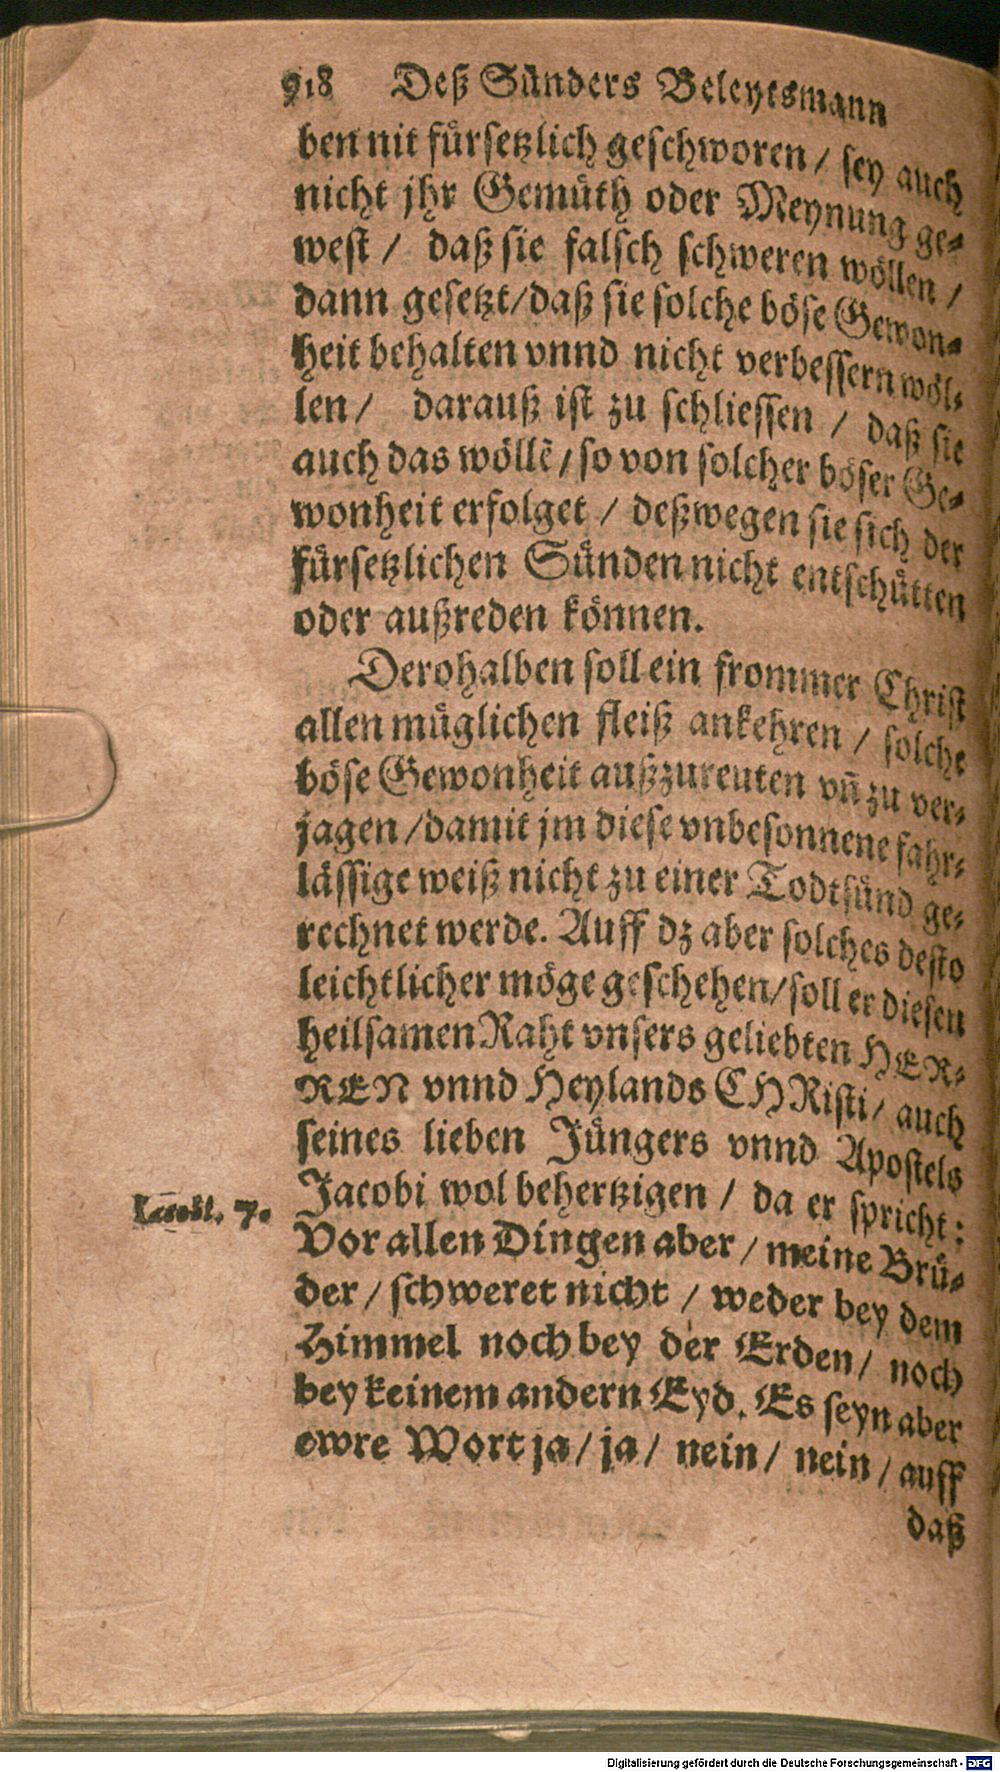 918 Deß Sünders Beleytsmann
ben nit fürsetzlich geschworen / sey auch
nicht jhr Gemüth oder Meynung ge-
west / daß sie falsch schweren wöllen /
dann gesetzt/daß sie solche böse Gewon-
heit behalten vnnd nicht verbessern wöl-
len / darauß ist zu schliessen / daß sie
auch das wöllẽ / so von solcher böser Ge-
wonheit erfolget / deßwegen sie sich der
fürsetzlichen Sünden nicht entschütten
oder außreden können.
Derohalben soll ein frommer Christ
allen müglichen fleiß ankehren / solche
böse Gewonheit außzureuten vñ zu ver-
jagen / damit jm diese vnbesonnene fahr-
lässige weiß nicht zu einer Todtsünd ge-
rechnet werde. Auff dz aber solches desto
leichtlicher möge geschehen/soll er diesen
heilsamen Raht vnsers geliebten HER-
REN vnnd Heylands CHRisti / auch
seines lieben Jüngers vnnd Apostels
Jacobi wol behertzigen / da er spricht:
Vor allen Dingen aber / meine Brü-
der / schweret nicht / weder bey dem
Himmel noch bey der Erden / noch
bey keinem andern Eyd. Es seyn aber
ewre Wort ja / ja / nein / nein / auff
daß
7.
Digitalisierung gefördert durch die Deutsche Forschungsgemeinschaft - DFG